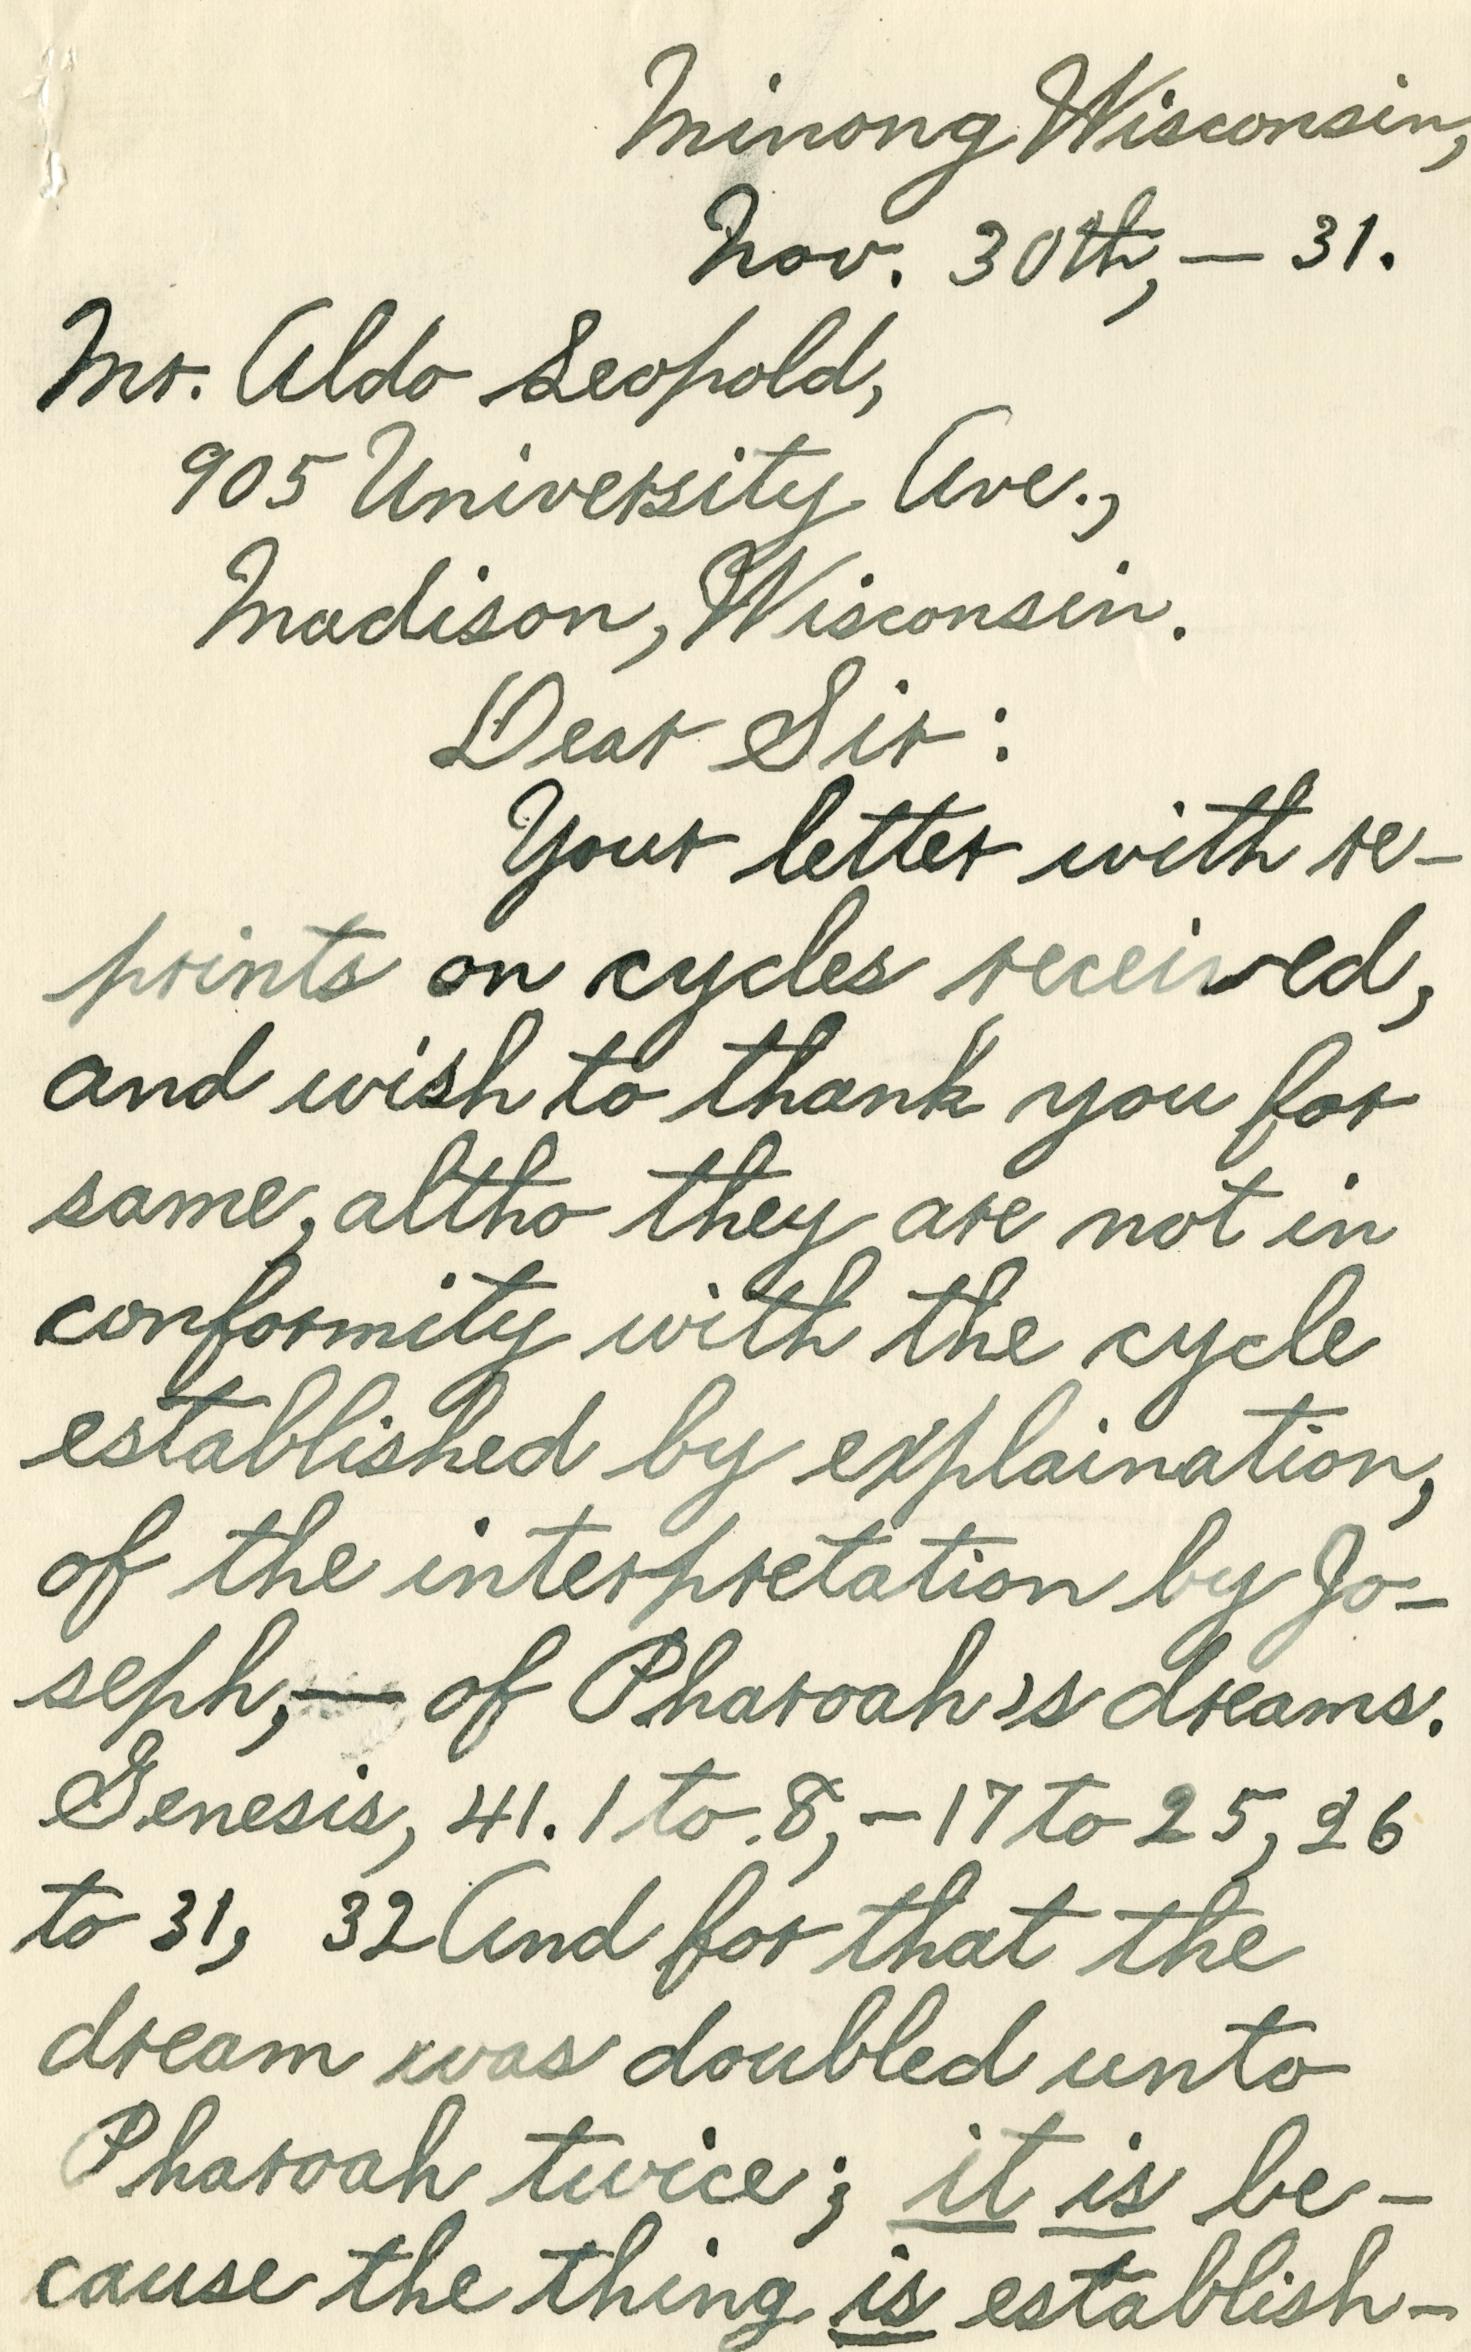 Minong Wisconsin,
Nov. 30th, — 31.
Mr. Aldo Leopold,
905 University Ave.,
Madison, Wisconsin.
Dear Sir:
Your letter with re-
prints on cycles received,
and wish to thank you for
same, altho they are not in
conformity with the cycle
established by explaination,
of the interpretation by Jo-
seph, — of Pharoah's dreams.
Genesis, 41. 1 to 8, - 17 to 25, 26
to 31, 32 And for that the
dream was doubled unto
Pharoah twice; it is be-
cause the thing is establish-